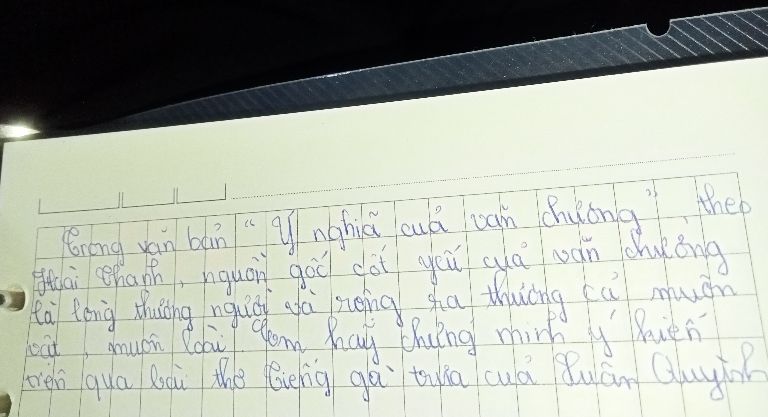 Trong văn bản " Ý nghĩa của văn chương", theo
Hoài Thanh, nguồn gốc cốt yếu của văn chương
là lòng thương người và rộng ra thương cả muôn
vật, muôn loài. Em hãy chứng minh ý kiến
trên qua bài thơ Tiếng gà trưa của Xuân Quỳnh